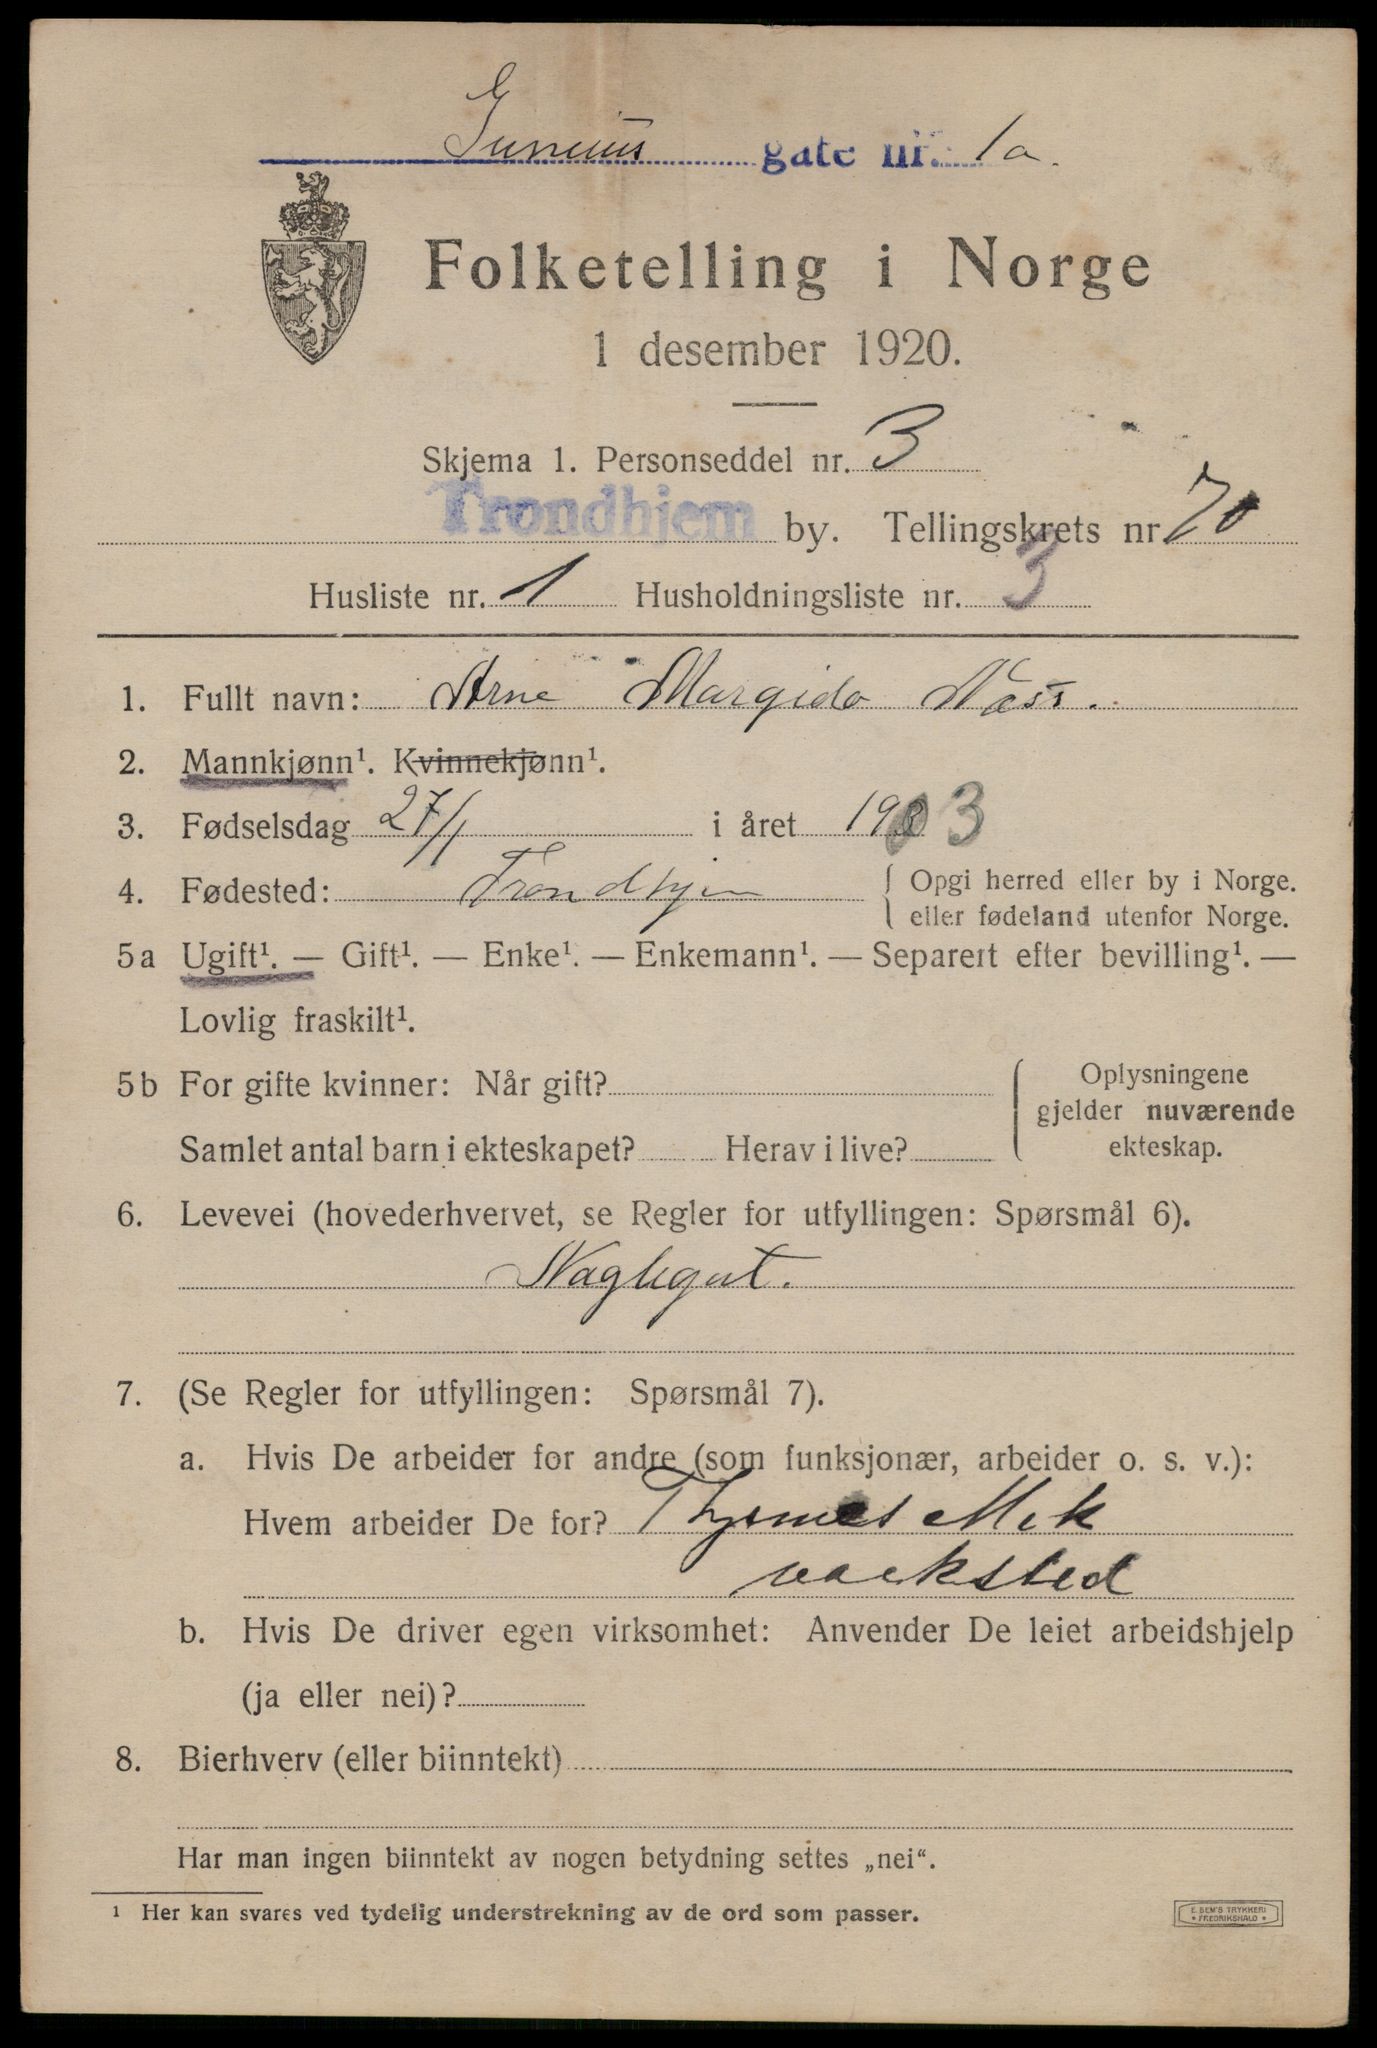 gate nr. 1a.
Folketelling i Norge
1 desember 1920.
Skjema 1. Personseddel nr. 3
Trondhjem by. Tellingskrets nr 70
Husliste nr. 1 Husholdningsliste nr. 3
1. Fullt navn: Arne Margido Næss.
2. Mannkjønn¹. Kvinnekjønn¹.
3. Fødselsdag 27/1 i året 1903
4. Fødested: Trondhjem { Opgi herred eller by i Norge.
eller fødeland utenfor Norge.
5a Ugift¹. — Gift¹. — Enke¹. — Enkemann¹. — Separert efter bevilling¹. —
Lovlig fraskilt¹.
5b For gifte kvinner: Når gift?
Samlet antal barn i ekteskapet? Herav i live?
Oplysningene
gjelder nuværende
ekteskap.
6. Levevei (hovederhvervet, se Regler for utfyllingen: Spørsmål 6).
Naglegut.
7. (Se Regler for utfyllingen: Spørsmål 7).
a. Hvis De arbeider for andre (som funksjonær, arbeider o. s. v.):
Hvem arbeider De for? Mek
værksted
b. Hvis De driver egen virksomhet: Anvender De leiet arbeidshjelp
(ja eller nei)?
8. Bierhverv (eller biinntekt)
Har man ingen biinntekt av nogen betydning settes „nei“.
¹ Her kan svares ved tydelig understrekning av de ord som passer.
E. SEM'S TRYKKERI
• FREDRIKSHALD •